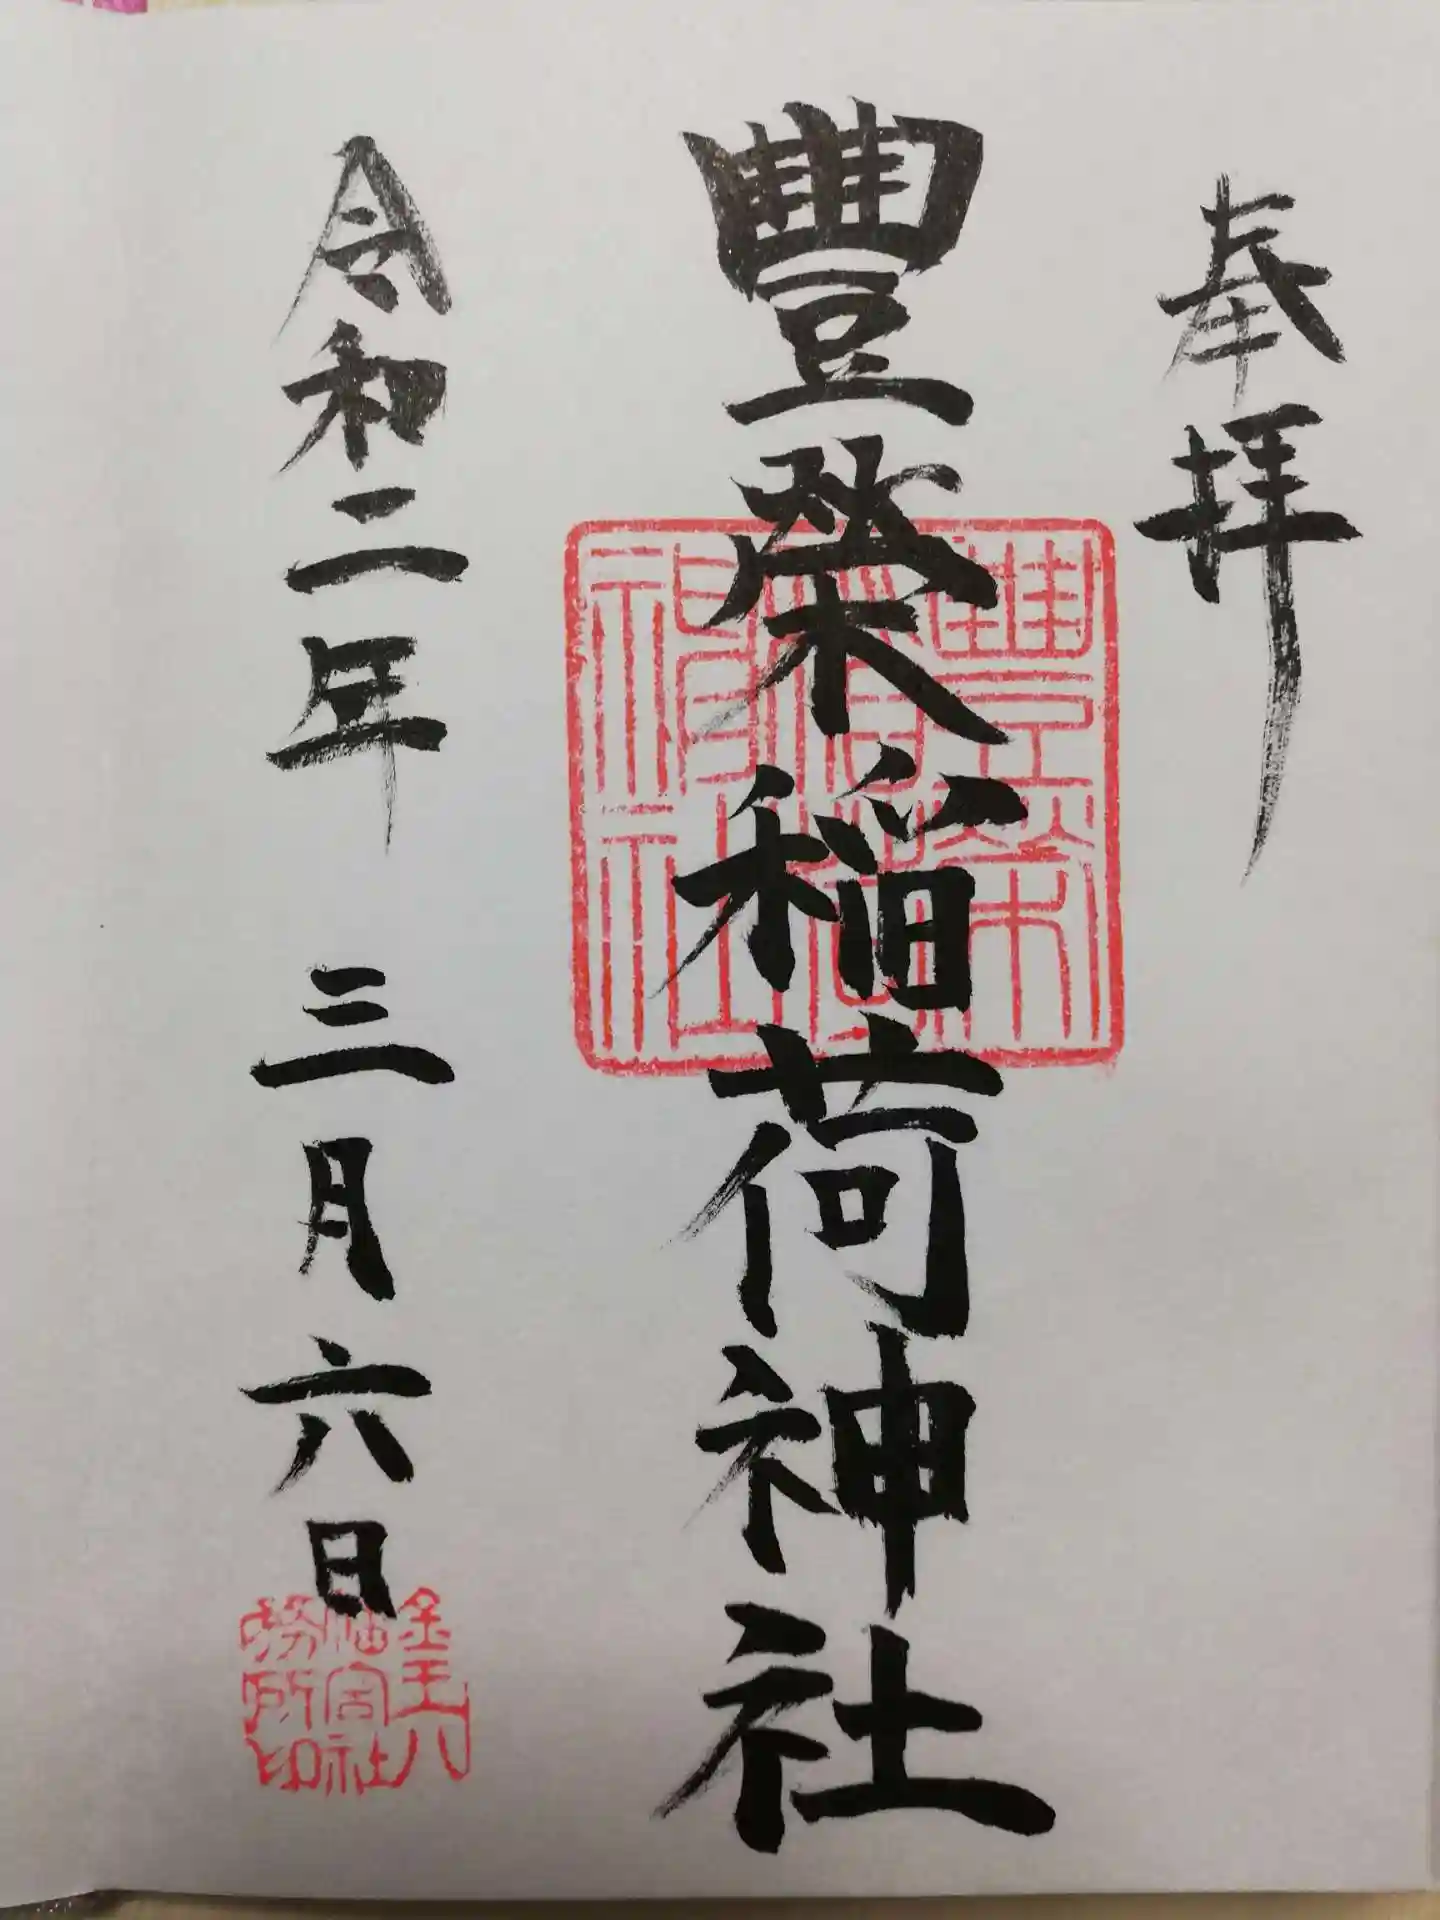 奉拝
豊栄稲荷神社
豊栄稲荷神社
令和二年 三月六日
金王八幡宮社務所印